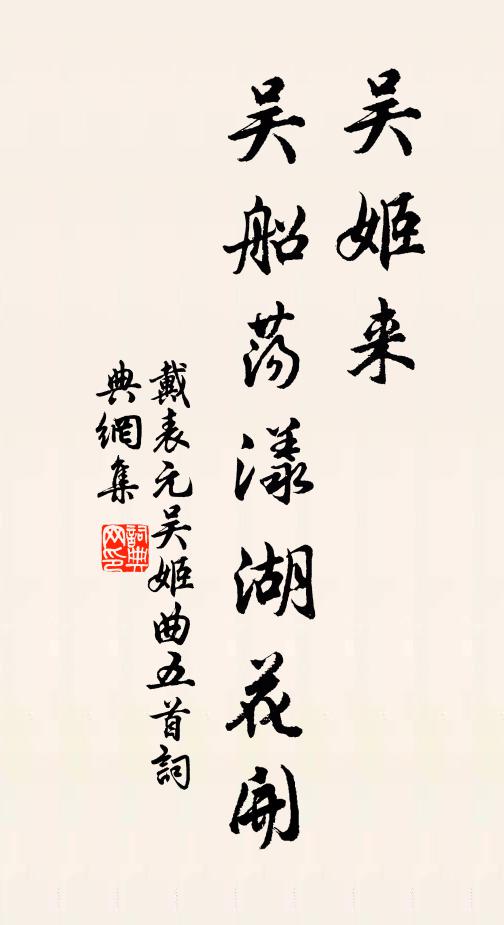 吴姬来
吴船荡漾湖花開
戴表元吴姬曲五首詞
典網集
詞典网印